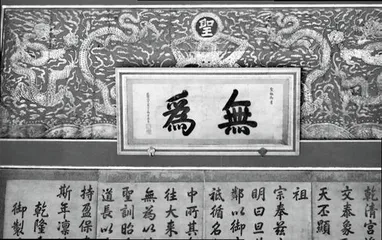 聖
無爲
乾清宮
文泰象
天丕顯
祖
宗奉茲
明曰旦
鄰以御
祗循名
中所其
往大來
無為以
聖訓昭
道長以
持盈保
斯年凛
乾隆
御製